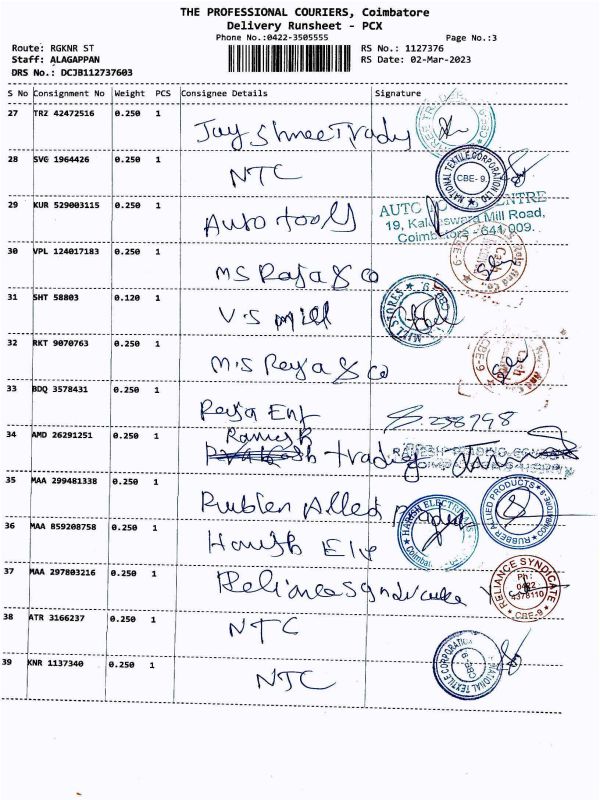 THE PROFESSIONAL COURIERS, Coimbatore
Delivery Runsheet - PCX
Phone No.:0422-3505555 Page No.:3
Route: RGKNR ST RS No.: 1127376
Staff: ALAGAPPAN RS Date: 02-Mar-2023
DRS No.: DCJB112737603
S No Consignment No Weight PCS Consignee Details Signature
27 TRZ 42472516 0.250 1
Jay Shree Trady
28 SVG 1964426 0.250 1
NTC
NATIONAL TEXTILE CORPORATION LTD CBE-9.
29 KUR 529003115 0.250 1
Auto tools
AUTO CENTRE
19, Kaleeswara Mill Road,
Coimbatore - 641 009.
30 VPL 124017183 0.250 1
MS Raja & co
31 SHT 58803 0.120 1
V.S mill
MILL STORES
32 RKT 9070763 0.250 1
M.S Reya & co
CBE-9
33 BDQ 3578431 0.250 1
Reya Ent
34 AMD 26291251 0.250 1
Ramesh
trady
35 MAA 299481338 0.250 1
Rubien Alled
RUBBER ALLIED PRODUCTS COIMBATORE-9
36 MAA 859208758 0.250 1
Harish Ele
HARISH ELECTRICALS
37 MAA 297803216 0.250 1
Reliance Syndicate
RELIANCE SYNDICATE Ph: 0422 4378110 CBE-9
38 ATR 3166237 0.250 1
NTC
39 KNR 1137340 0.250 1
NTC
NATIONAL TEXTILE CORPORATION CBE-9